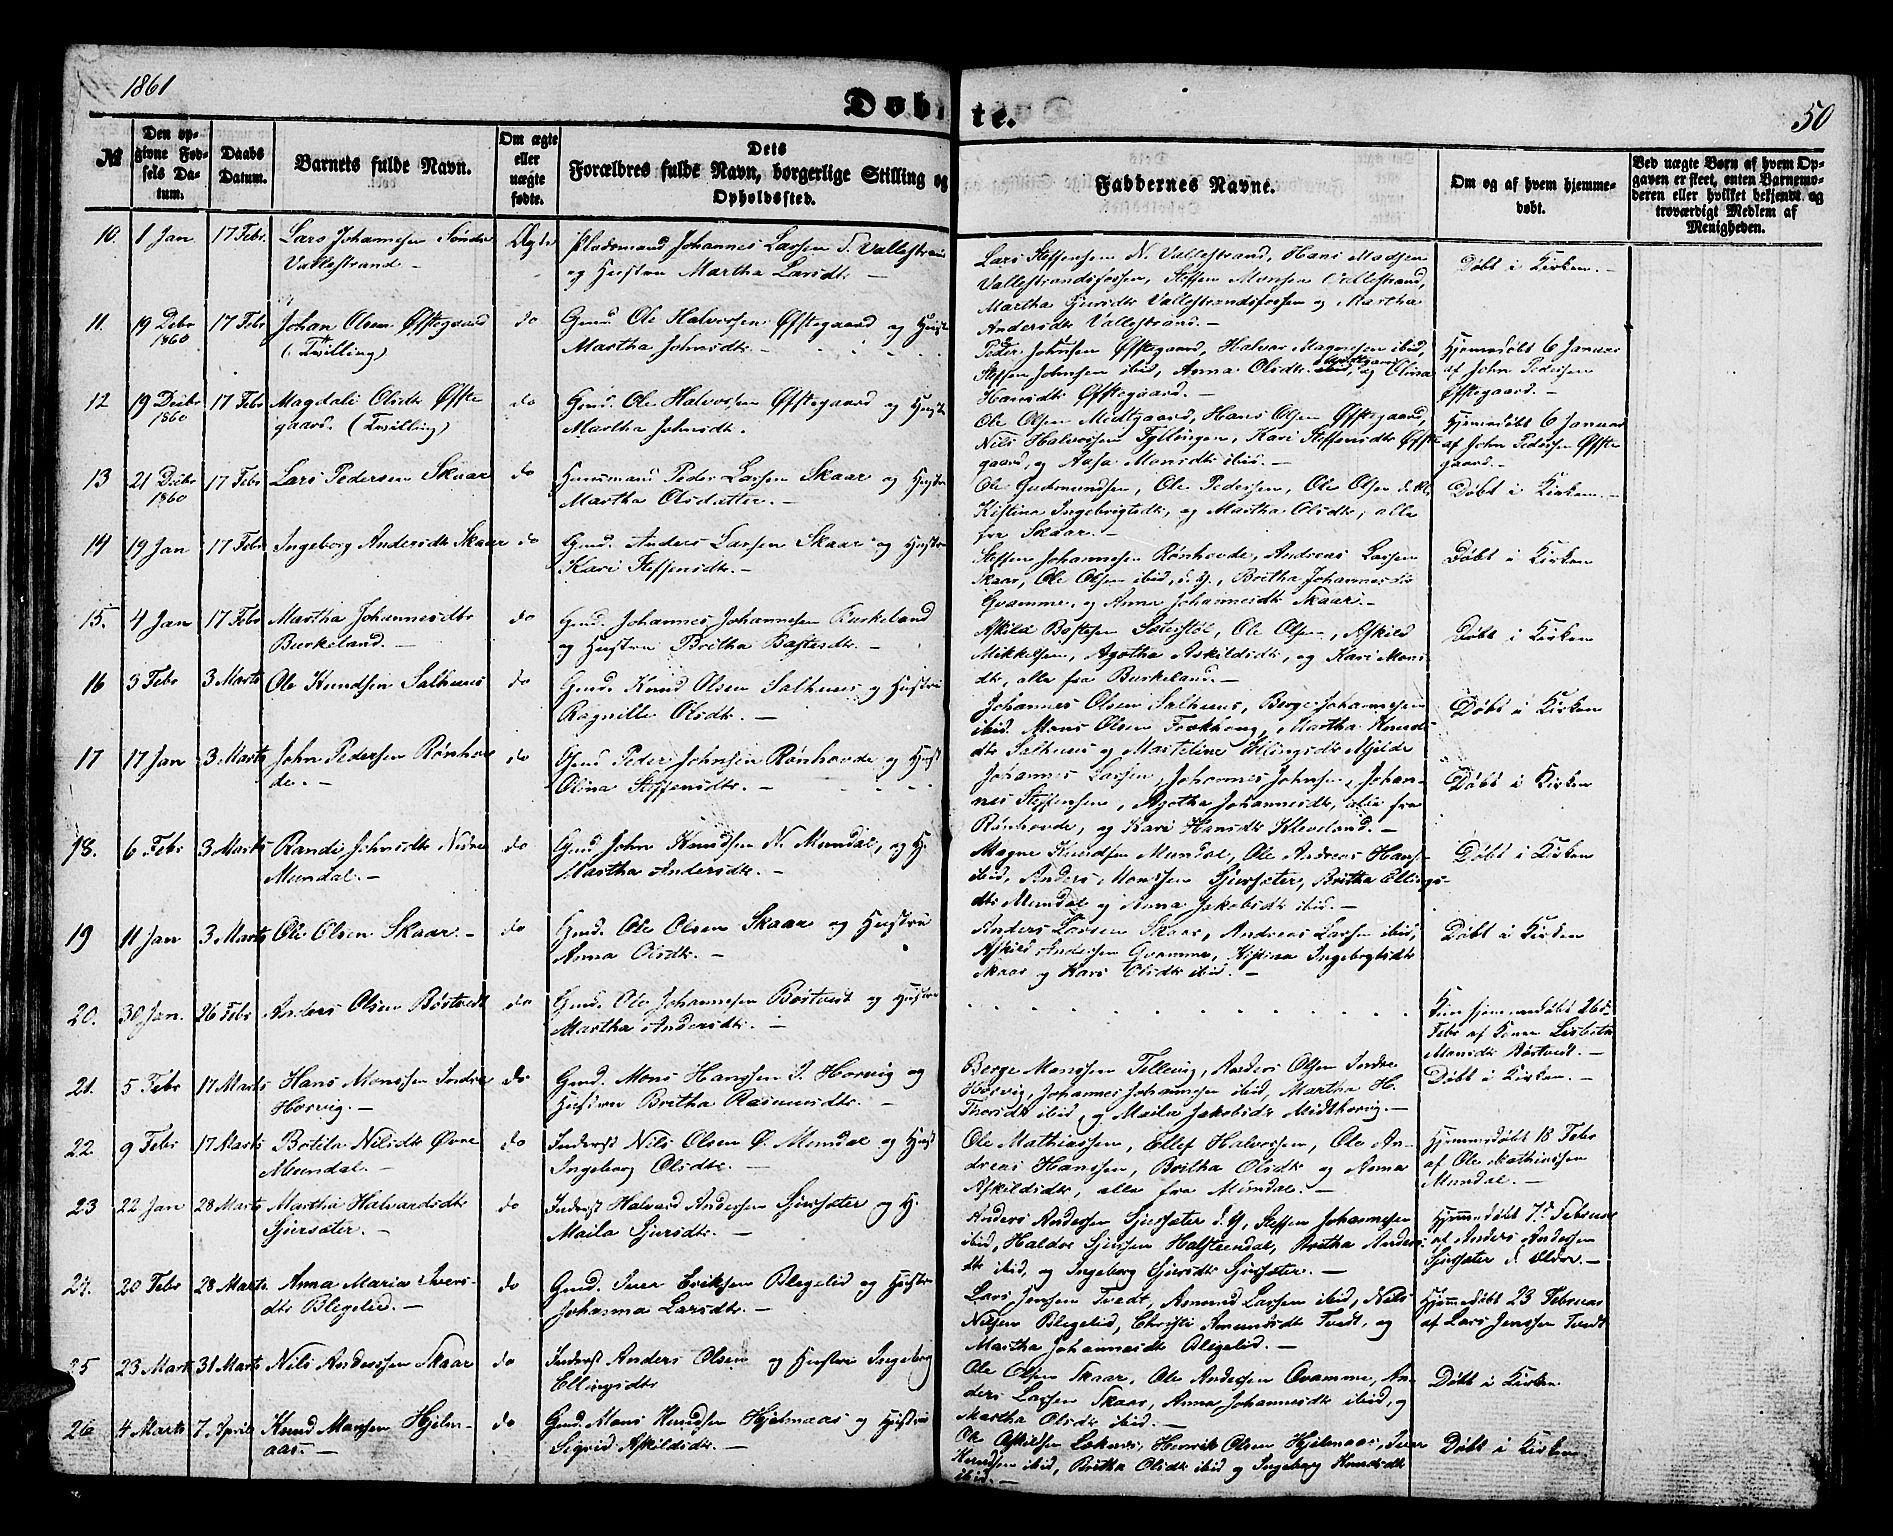 1861
Døbte.
50
№
Den opgivne Fødsels Datum.
Daabs Datum.
Barnets fulde Navn.
Om ægte eller uægte fødte.
Dets Forældres fulde Navn, borgerlige Stilling og Opholdssted.
Faddernes Navne.
Om og af hvem hjemmedøbt.
Ved uægte Børn af hvem Opgaven er skeet, enten Barnemoderen eller hvilket bekjendt og troværdigt Medlem af Menigheden.
10. 8 Jan 17 Febr. Lars Johannesen Søndre Ægte Pladsmand Johannes Larsen S. Vallestrand
Vallestrand – og Hustru Martha Larsdtr –
Lars Steffensen N. Vallestrand, Hans Madsen
Vallestrandsfossen, Steffen Monsen Vallestrand,
Martha Sjursdtr Vallestrandsfossen og Martha
Andersdtr Vallestrand. –
Døbt i Kirken. –
11. 19 Debr 1860 17 Febr Johan Olsen Øfstegaard do Gmd. Ole Halvorsen Øfstegaard og Hustr
(: Tvilling) Martha Johnsdtr –
Peder Johnsen Øfstegaard, Halvor Magnesen ibid,
Steffen Johnsen ibid, Anna Olsdtr Midtgaard, og Olina
Hansdtr Øfstegaard. –
Hjemmedøbt 6 Januar
af John Pedersen
Øfstegaard. –
12 19 Debr 1860 17 Febr Magdali Olsdtr Øfste do Gmd. Ole Halvorsen Øfstegaard og Hustr
gaard. (Tvilling) Martha Johnsdtr.
Ole Olsen Medtgaard, Hans Olsen Øfstegaard,
Nils Halvorsen Fyllingen, Kari Steffensdtr Øfste
gaard, og Aasa Monsdtr ibid. –
Hjemmedøbt 6 Januar
af John Pedersen Øfste
gaard. –
13 21 Debr 1860 17 Febr Lars Pedersen Skaar do Huusmand Peder Larsen Skaar og Hustru
Martha Olsdatter. –
Ole Gudmundsen, Ole Pedersen, Ole Olsen d. Æ,
Kistina Ingebrigtsdtr, og Martha Olsdtr, alle
fra Skaar. –
Døbt i Kirken. –
14 19 Jan 17 Febr Ingeborg Andersdtr Skaar do Gmd. Anders Larsen Skaar og Hustru
Kari Steffensdtr. –
Steffen Johannesen Rønhovde, Andreas Larsen
Skaar, Ole Olsen ibid, d. y., Britha Johannesdtr
Gvamme, og Anna Johannesdtr Skaar. –
Døbt i Kirken
15. 4 Jan 17 Febr Martha Johannesdtr do Gmd. Johannes Johannesen Burkeland
Burkeland. – og Hustru Britha Bastesdtr. –
Askild Bastesen Sæterstøl, Ole Olsen, Askild
Mikkelsen, Agatha Askildsdtr, og Kari Mons
dtr, alle fra Burkeland. –
Døbt i Kirken
16 3 Febr 3 Marts Ole Knudsen Salhuus do Gmd. Knud Olsen Salhuus og Hustru
Ragnille Olsdtr. –
Johannes Olsen Salhuus, Berge Johannesen
ibid. Mons Olsen Frækhoug, Martha Knuds
dtr Salhuus og Marteline Ellingsdtr Mjelde
Døbt i Kirken
17 17 Jan 3 Marts John Pedersen Rønhov do Gmd Peder Johnsen Rønhovde, og Hust
de. – Olina Steffensdtr. –
Johannes Larsen, Johannes Johnsen, Johan-
nes Steffensen, Agatha Johannesdtr, alle fra
Rønhovde, og Kari Hansdtr Kleveland. –
Døbt i Kirken
18. 6 Febr 3 Marts Randi Johnsdtr Nedre do Gmd John Knudsen N. Mundal, og H.
Mundal. – Martha Andersdtr. –
Magne Knudsen Mundal, Ole Andreas Hans-
ibid, Anders Monssen Sjursæter, Britha Ellings-
dtr Mundal og Anna Jakobsdtr ibid. –
Døbt i Kirken
19 11 Jan 3 Marts Ole Olsen Skaar. – do Gmd. Ole Olsen Skaar og Hustru
Anna Olsdtr. –
Anders Larsen Skaar, Andreas Larsen ibid,
Askild Andersen Gvamme, Kistina Ingebrigtsdtr
Skaar og Kari Olsdtr ibid. –
Døbt i Kirken
20. 30 Jan. 26 Febr Anders Olsen Børstvedt do Gmd. Ole Johannesen Børstvedt og Hustru
Martha Andersdtr. –
Kun hjemmedøbt 26de
Febr af Konen Lisbeta
Monsdtr Børstvedt. –
21. 5 Febr 17 Marts Hans Monssen Indre do Gmd. Mons Hanssen I. Horvig og
Horvig. – Hustru Britha Rasmusdtr. –
Berge Monssen Tellevig, Anders Olsen Indre
Horvig, Johannes Johannesen ibid, Martha H.
Thorsdtr ibid, og Maila Jakobsdtr Midthorvig. –
Døbt i Kirken. –
22. 9 Febr 17 Marts Botila Nilsdtr Øvre do Inderst Nils Olsen Ø. Mundal og Hust
Mundal. – Ingeborg Olsdtr. –
Ole Mathiassen, Ellef Halvorsen, Ole An-
dreas Hanssen, Britha Olsdtr og Anna
Askildsdtr, alle fra Mundal. –
Hjemmedøbt 18 Febr
af Ole Mathiassen
Mundal. –
23 22 Jan 28 Marts Martha Halvardsdtr do Inderst Halvard Andersen Sjursæter og H.
Sjursæter. – Maila Sjursdtr. –
Anders Andersen Sjursæter d. Y, Steffen Johannesen
ibid, Haldor Sjursen Halstendal, Britha Anders
dtr ibid, og Ingeborg Sjursdtr Sjursæter. –
Hjemmedøbt 7de Februar
af Anders Andersen
Sjursæter d. Eldre. –
24. 20 Febr 28 Marts Anna Maria Ivers- do Gmd. Iver Eriksen Blegelid og Hustru
dtr Blegelid. – Johanna Larsdtr. –
Lars Jenssen Tvedt, Amund Larssen ibid, Nils
Nilsen Blegelid, Christi Amundsdtr Tvedt, og
Martha Johannesdtr Blegelid. –
Hjemmedøbt 23 Februar
af Lars Jenssen Tvedt
25 23 Marts 31 Marts Nils Anderssen Skaar do Inderst Anders Olsen og Hustru Ingeborg
Ellingsdtr
Ole Olsen Skaar, Ole Andersen Qvamme, An-
ders Larsen Skaar, Anna Johannesdtr ibid, og
Martha Olsdtr ibid. –
Døbt i Kirken
26 4 Marts 7 April Knud Monsen Hjelm- do Gmd. Mons Knudsen Hjelmaas og Hustru
aas. – Sigrid Askildsdtr. –
Ole Askildsen Løknes, Henrik Olsen Hjelmaas, Iver
Knudsen ibid, Britha Olsdtr ibid og Ingeborg Knudsdtr
ibid. –
Døbt i Kirken